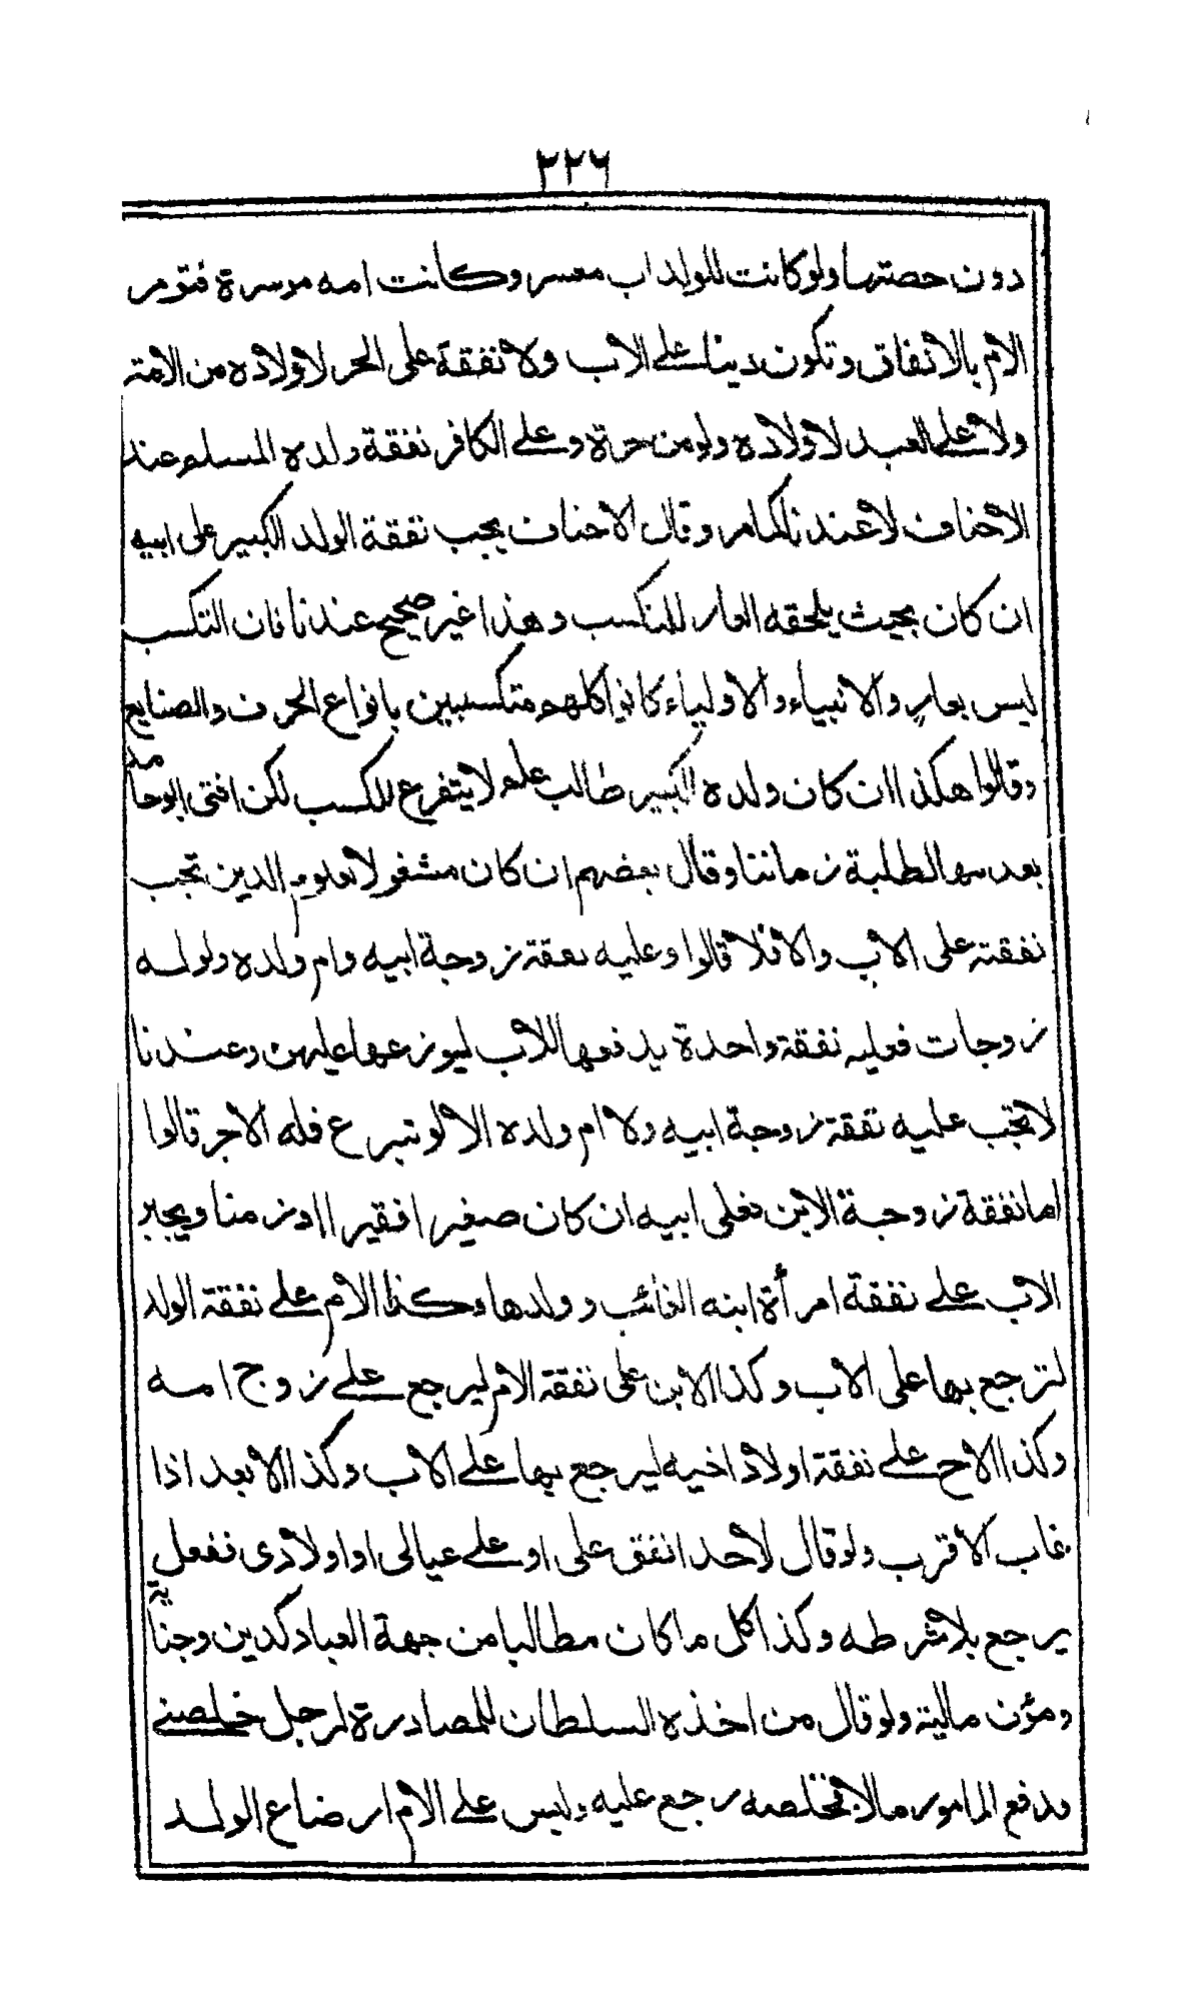 ٢٢٦
دون حصتها ولو كانت للولد اب معسر وكانت امه موسرة فتومر
الام بالانفاق وتكون دينا على الاب ولا نفقة على الحر لاولاده من الامة
ولا على العبد لاولاده ولو من حرة وعلى الكافر نفقة ولده المسلم عند
الاحناف لا عندنا كما مر وقال الاحناف يجب نفقة الولد الكبير على ابيه
ان كان بحيث يلحقه العار للتكسب وهذا غير صحيح عندنا فان التكسب
ليس بعار والانبياء والاولياء كانوا كلهم متكسبين بانواع الحرف والصنايع
وقالوا هكذا ان كان ولده الكبير طالب علم لا يتفرغ للكسب لكن افتى ابو حامد
بعدمها لطلبة زماننا وقال بعضهم ان كان مشغولا بعلوم الدين تجب
نفقته على الاب والا فلا قالوا وعليه نفقة زوجة ابيه وام ولده ولو له
زوجات فعليه نفقة واحدة يدفعها للاب ليوزعها عليهن وعندنا
لا تجب عليه نفقة زوجة ابيه ولا ام ولده الا لو تبرع فله الاجر قالوا
اما نفقة زوجة الابن فعلى ابيه ان كان صغيرا فقيرا او زمنا ويجبر
الاب على نفقة امرأة ابنه الغائب وولدها وكذا الام على نفقة الولد
لترجع بها على الاب وكذا الابن على نفقة الام ليرجع على زوج امه
وكذا الاخ على نفقة اولاد اخيه ليرجع بها على الاب وكذا الابعد اذا
غاب الاقرب ولو قال لاحد انفق على او على عيالى او اولادى ففعل
يرجع بلا شرطه وكذا كل ما كان مطالبا من جهة العباد كدين وجناية
ومؤن مالية ولو قال من اخذه السلطان للمصادرة لرجل خلصنى
فدفع المامور مالا فخلصه رجع عليه وليس على الام ارضاع الولد